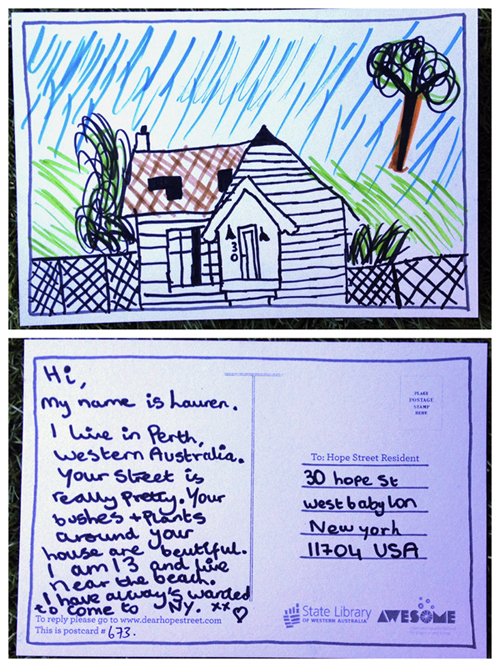 30
Hi,
my name is Lauren.
I live in Perth,
Western Australia.
Your street is
really Pretty. Your
bushes + Plants
around your
house are beutiful.
I am 13 and live
near the beach.
I have alway's wanded
to come to NY. xx ♡
To reply please go to www.dearhopestreet.com
This is postcard # 673.
PLACE
POSTAGE
STAMP
HERE
To: Hope Street Resident
30 hope St
west babylon
New york
11704 USA
State Library
OF WESTERN AUSTRALIA
AWESOME